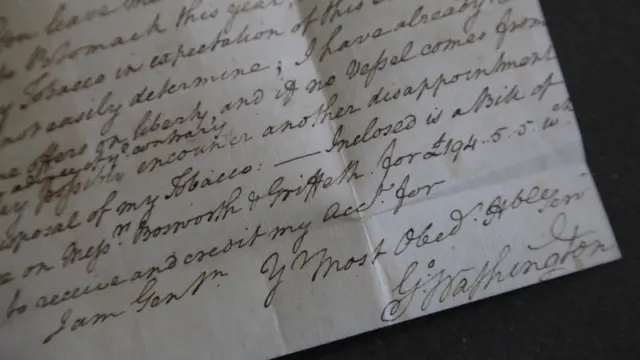 you leave me
Potomack this year,
Tobacco in expectation of this
not easily determine; I have already
offers in liberty, and if no Vessel comes from
advice to contrary
may possibly encounter another disappointment
disposal of my Tobacco: — Inclosed is a Bill of
on Messrs Bosworth & Griffith for £194..5..5. wch
to receive and credit my Acct. for
I am Gentn. Yr Most Obedt. Hble Servt
Go. Washington